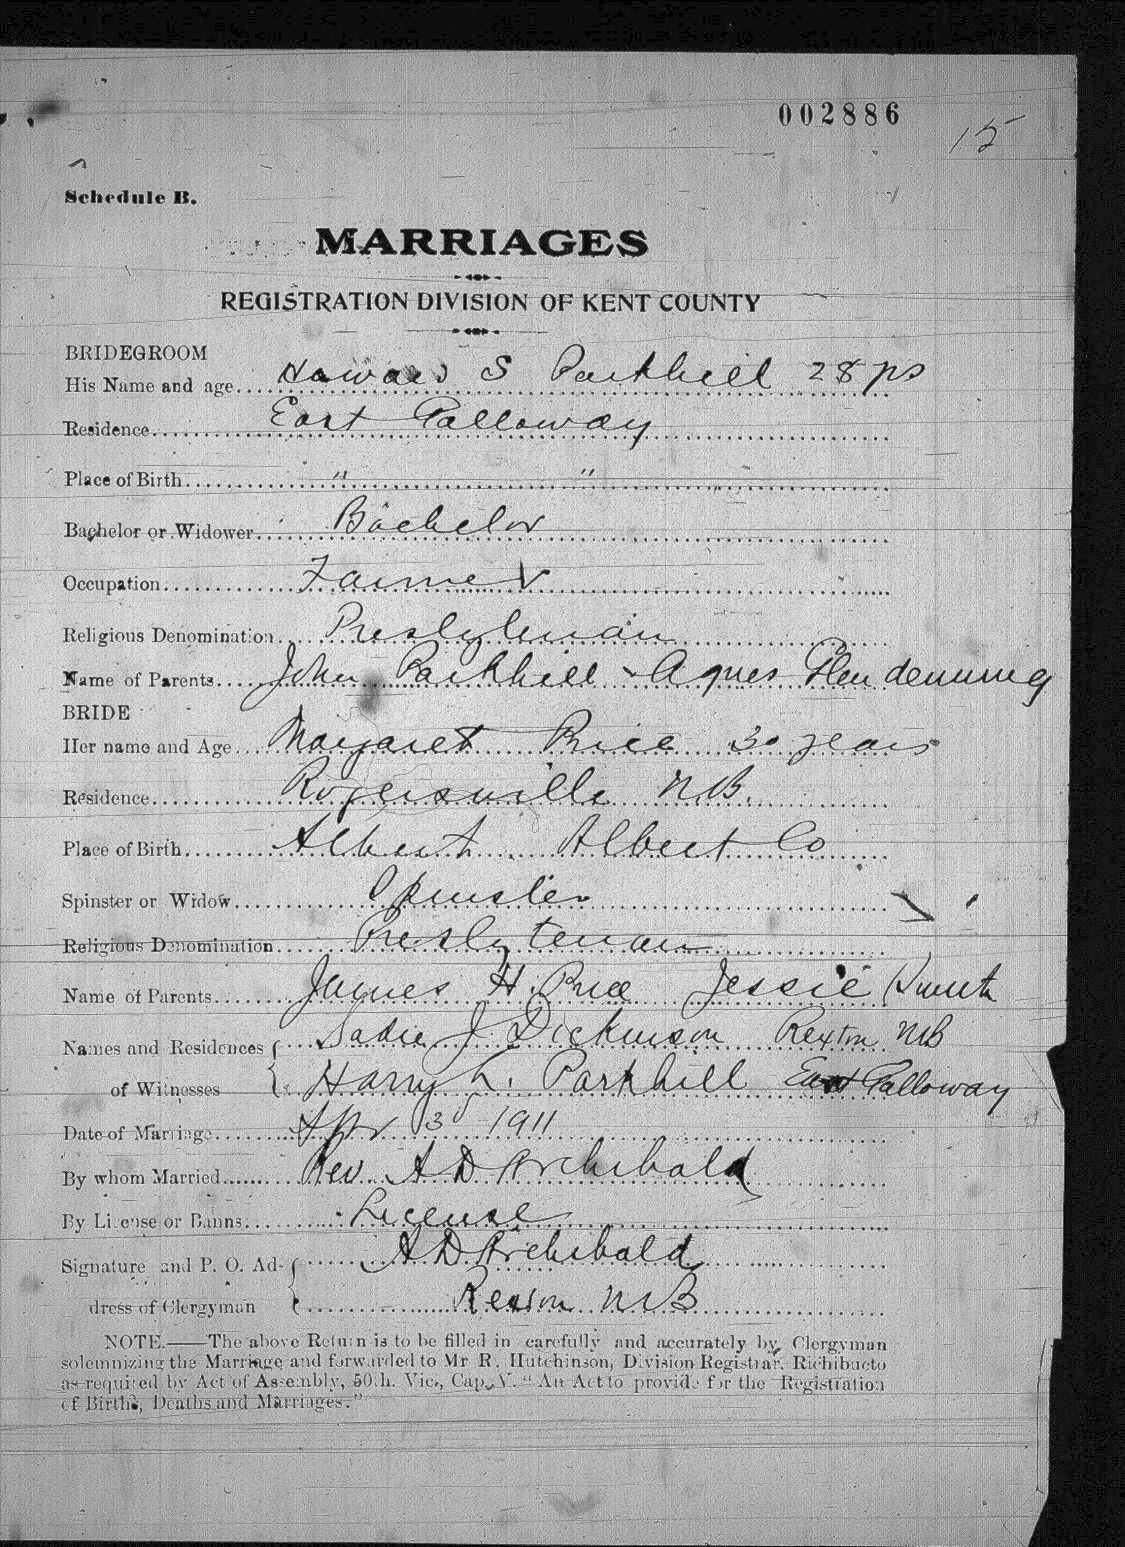 002886
15
Schedule B.
MARRIAGES
REGISTRATION DIVISION OF KENT COUNTY
BRIDEGROOM
His Name and age Howard S Parkhill 28 yrs
Residence East Galloway
Place of Birth " "
Bachelor or Widower Bachelor
Occupation Farmer
Religious Denomination Presbyterian
Name of Parents John Parkhill & Agnes Glendenning
BRIDE
Her name and Age Margaret Price 30 years
Residence Rogersville N.B.
Place of Birth Albert Albert Co
Spinster or Widow Spinster
Religious Denomination Presbyterian
Name of Parents James H. Price Jessie
Names and Residences Sadie J Dickinson Rexton NB
of Witnesses Harry L. Parkhill East Galloway
Date of Marriage Apr 1911
By whom Married Rev. A D Archibald
By License or Banns License
Signature and P. O. Ad- A D Archibald
dress of Clergyman Rexton N B
NOTE.—The above Return is to be filled in carefully and accurately by Clergyman
solemnizing the Marriage and forwarded to Mr R. Hutchinson, Division Registrar, Richibucto
as required by Act of Assembly, 50th. Vic., Cap. V. "An Act to provide for the Registration
of Births, Deaths and Marriages."